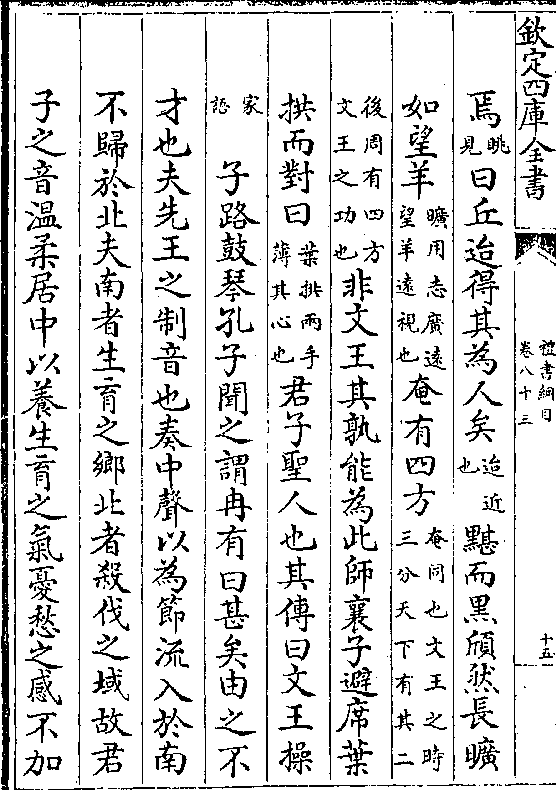 欽定四庫全書
禮書綱目
卷八十三
十五
焉眺見曰丘迨得其為人矣迨近也黮而黑頎然長曠
如望羊曠用志廣遠望羊遠視也奄有四方奄同也文王之時三分天下有其二
後周有四方文王之功也非文王其孰能為此師襄子避席葉
拱而對曰葉拱兩手薄其心也君子聖人也其傳曰文王操
家語子路鼓琴孔子聞之謂冉有曰甚矣由之不
才也夫先王之制音也奏中聲以為節流入於南
不歸於北夫南者生育之鄉北者殺伐之域故君
子之音溫柔居中以養生育之氣憂愁之感不加